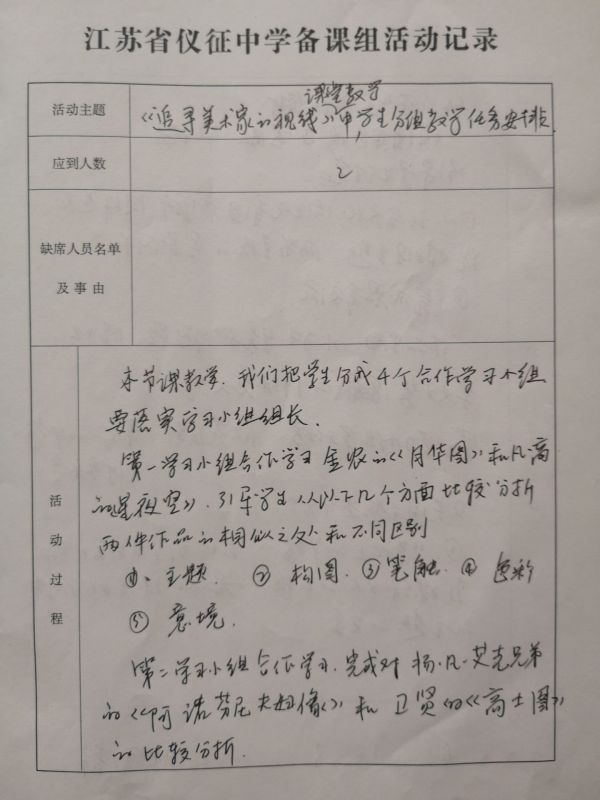 江苏省仪征中学备课组活动记录
活动主题
课堂教学
《追寻美术家的视线》中,学生分组教学任务安排.
应到人数
2
缺席人员名单
及事由
活动过程
本节课教学.我们把学生分成4个合作学习小组
要落实学习小组组长.
第一学习小组合作学习金农的《月华图》和凡·高
的《星夜空》.引导学生从以下几个方面比较分析
两件作品的相似之处和不同区别
①、主题. ② 构图. ③ 笔触. ④ 色彩
⑤ 意境.
第二学习小组合作学习.完成对杨·凡·艾克兄弟
的《阿诺芬尼夫妇像》和卫贤的《高士图》
的比较分析.